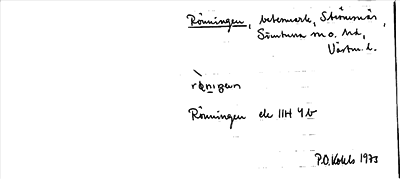 Rönningen, betesmark, Strömsnäs,
Simtuna m o. hd,
Västm. l.
rö̀nigan
Rönningen ek 11H 4b
P.O. Kohls 1973